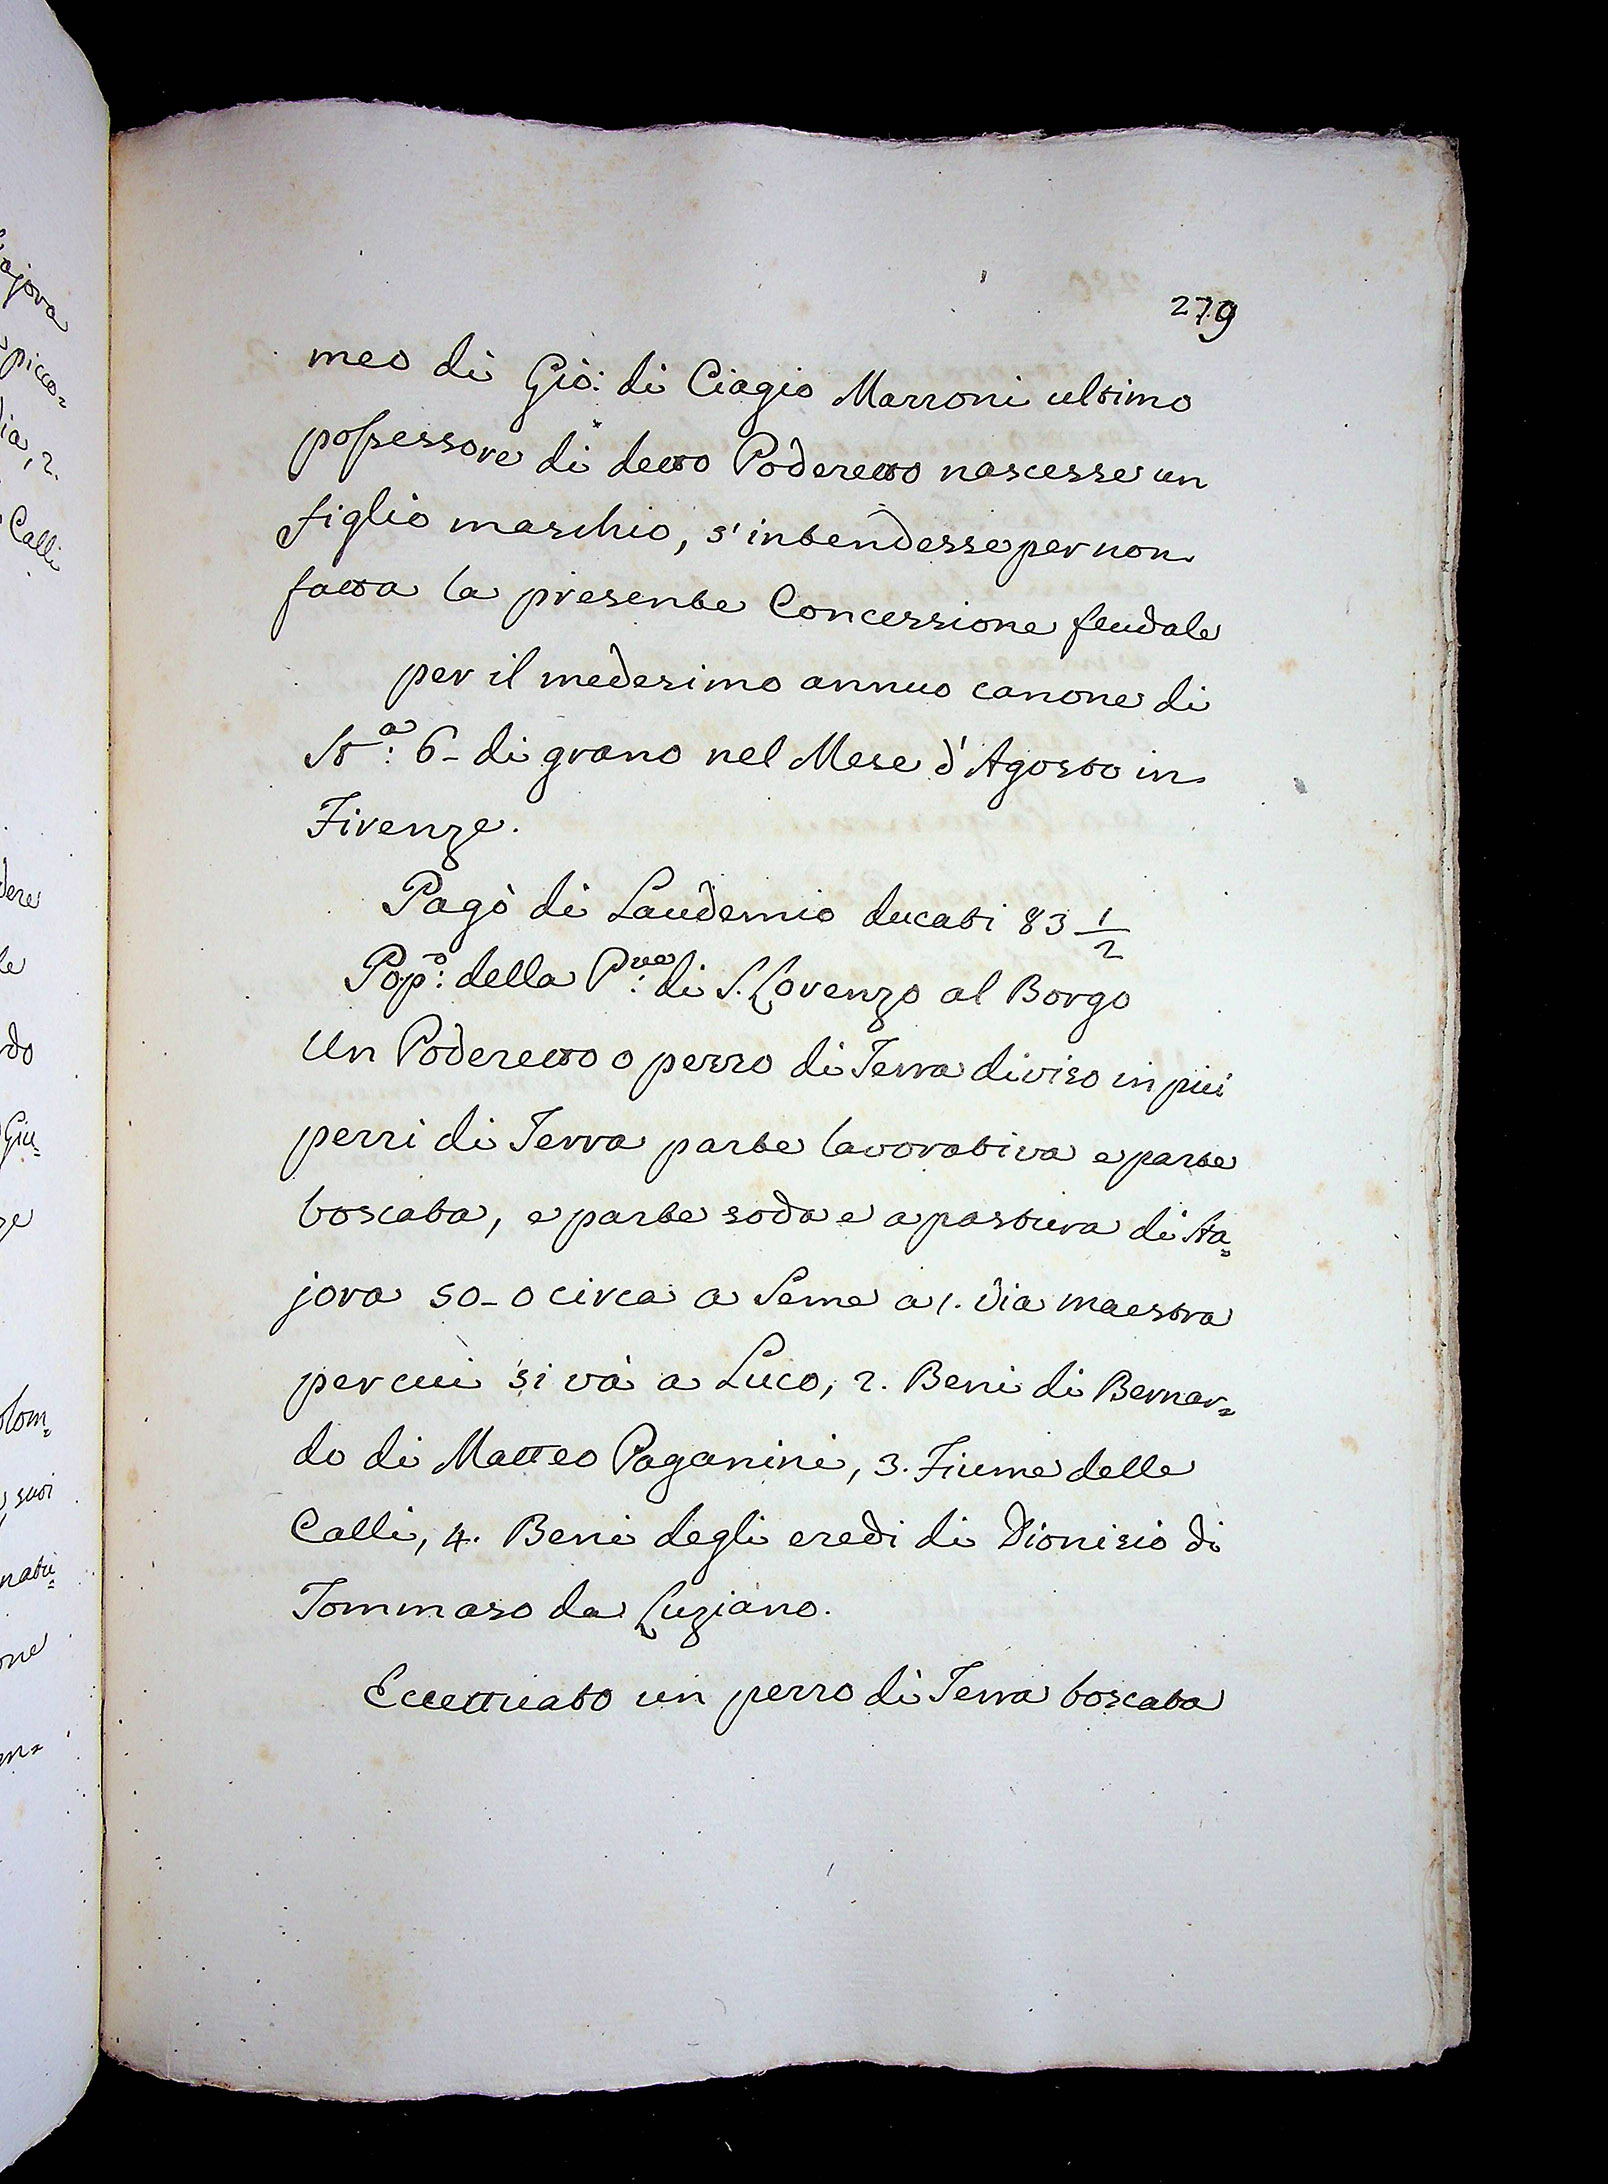 279
meo di Gio: di Ciagio Marroni ultimo
possessore di detto Poderetto nascesse un
figlio maschio, s'intendesse per non
fatta la presente Concessione feudale
per il medesimo annuo canone di
St.ª: 6 - di grano nel Mese d'Agosto in
Firenze.
Pagò di Laudemio ducati 83 1/2
Pop.º: della P.ve: di S. Lorenzo al Borgo
Un Poderetto o pezzo di Terra diviso in più
pezzi di Terra parte lavorativa e parte
boscata, e parte soda e a pastura di sta=
jora 50 - o circa a Seme a 1. Via maestra
per cui si và a Luco, 2. Beni di Bernar=
do di Matteo Paganini, 3. Fiume delle
Calli, 4. Beni degli eredi di Dionisio di
Tommaso da Luziano.
Eccettuato un pezzo di Terra boscata
ajora
picco=
ia, 2.
Calli
dere
le
do
Giu=
olom=
suoi
natu=
one